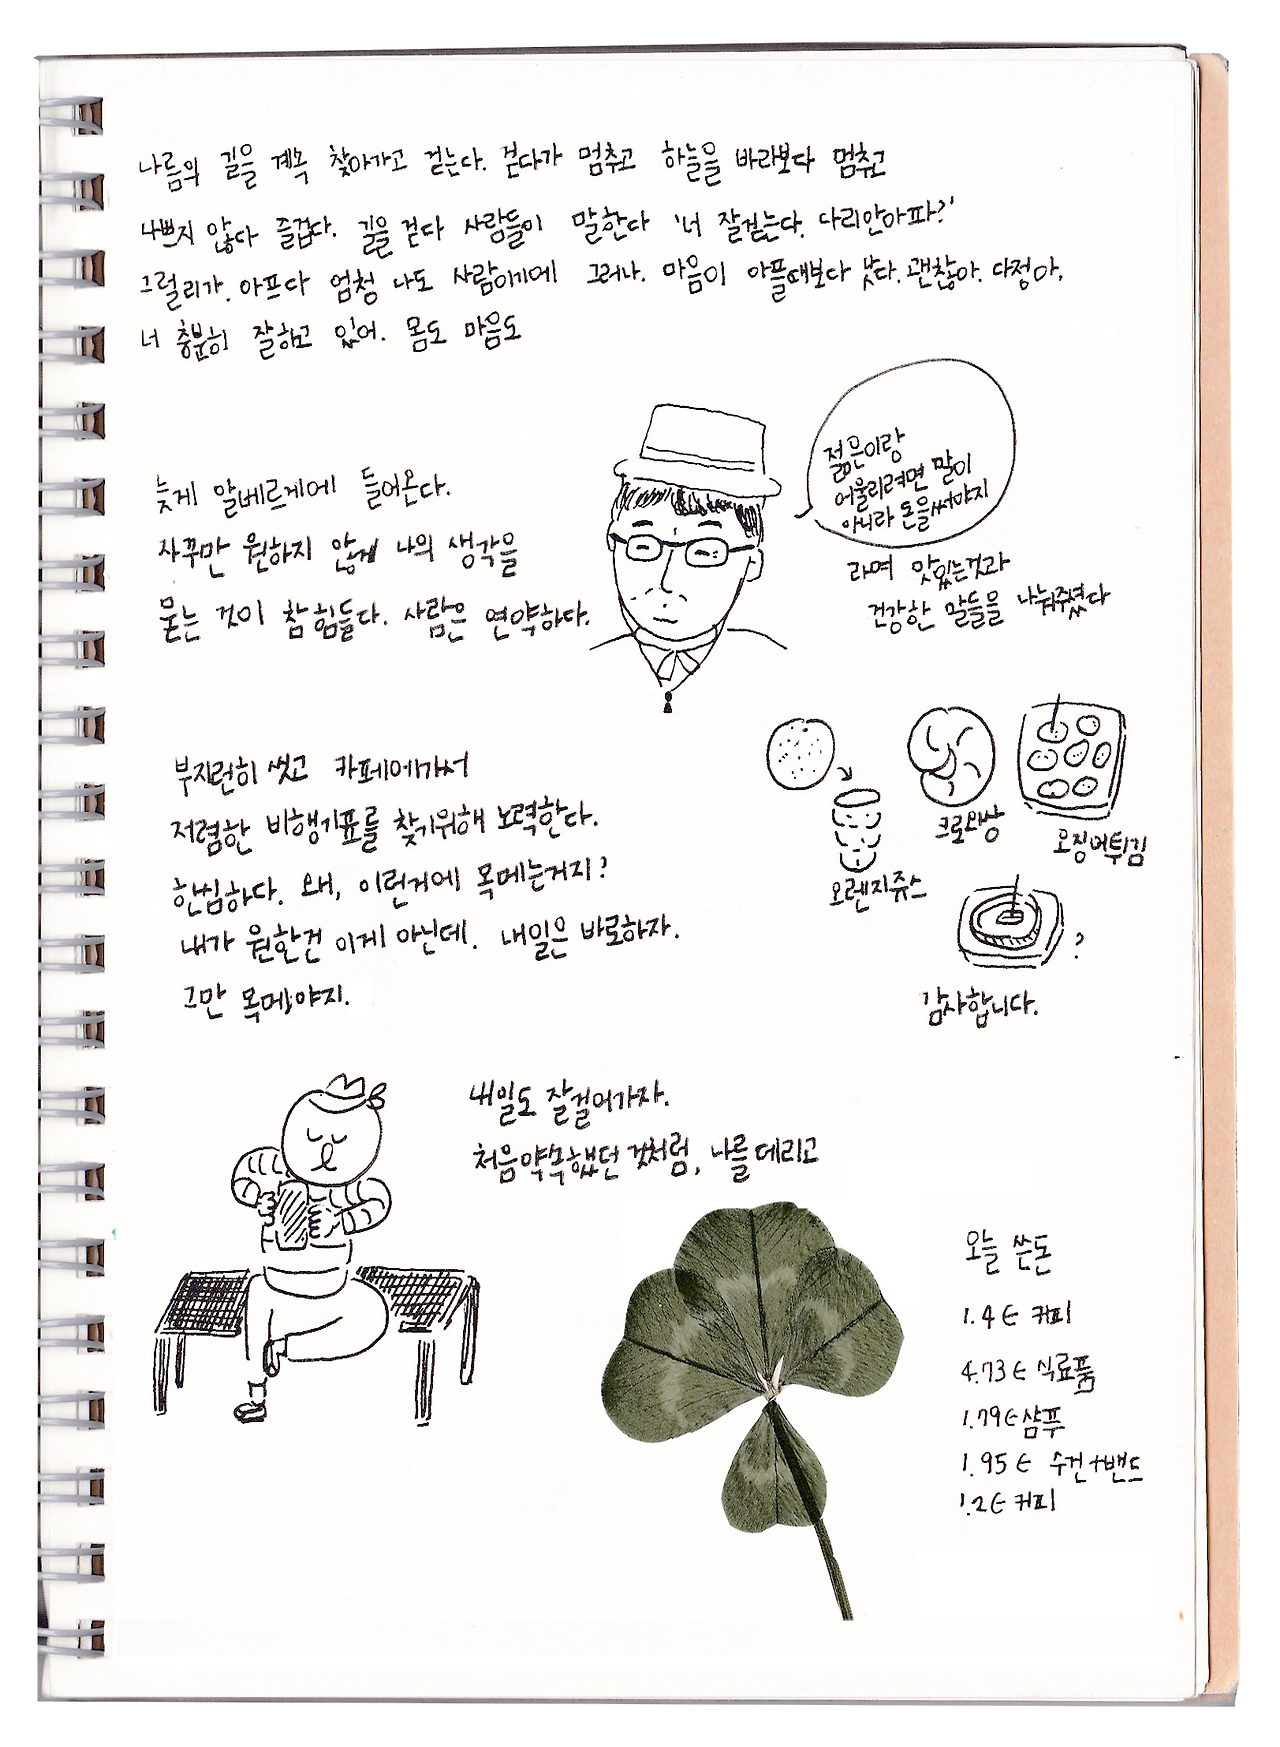 나름의 길을 계속 찾아가고 걷는다. 걷다가 멈추고 하늘을 바라보다 멈추고
나쁘지 않다 즐겁다. 길을 걷다 사람들이 말한다 '너 잘걷는다. 다리안아파?'
그럴리가. 아프다 엄청 나도 사람이기에 그러나. 마음이 아플때보다 낫다. 괜찮아. 다정아,
너 충분히 잘하고 있어. 몸도 마음도
젊은이랑
어울리려면 말이
아니라 돈을써야지
라며 맛있는것과
건강한 말들을 나눠주셨다
늦게 알베르게에 들어온다.
자꾸만 원하지 않게 나의 생각을
묻는 것이 참 힘들다. 사람은 연약하다.
부지런히 씻고 카페에가서
저렴한 비행기표를 찾기위해 노력한다.
한심하다. 왜, 이런거에 목메는거지?
내가 원한건 이게 아닌데. 내일은 바로하자.
그만 목메야지.
크로와상
오징어튀김
오렌지쥬스
?
감사합니다.
내일도 잘걸어가자.
처음약속했던 것처럼, 나를데리고
오늘 쓴돈
1.4€ 커피
4.73€ 식료품
1.79€ 샴푸
1.95€ 수건+밴드
1.2€ 커피